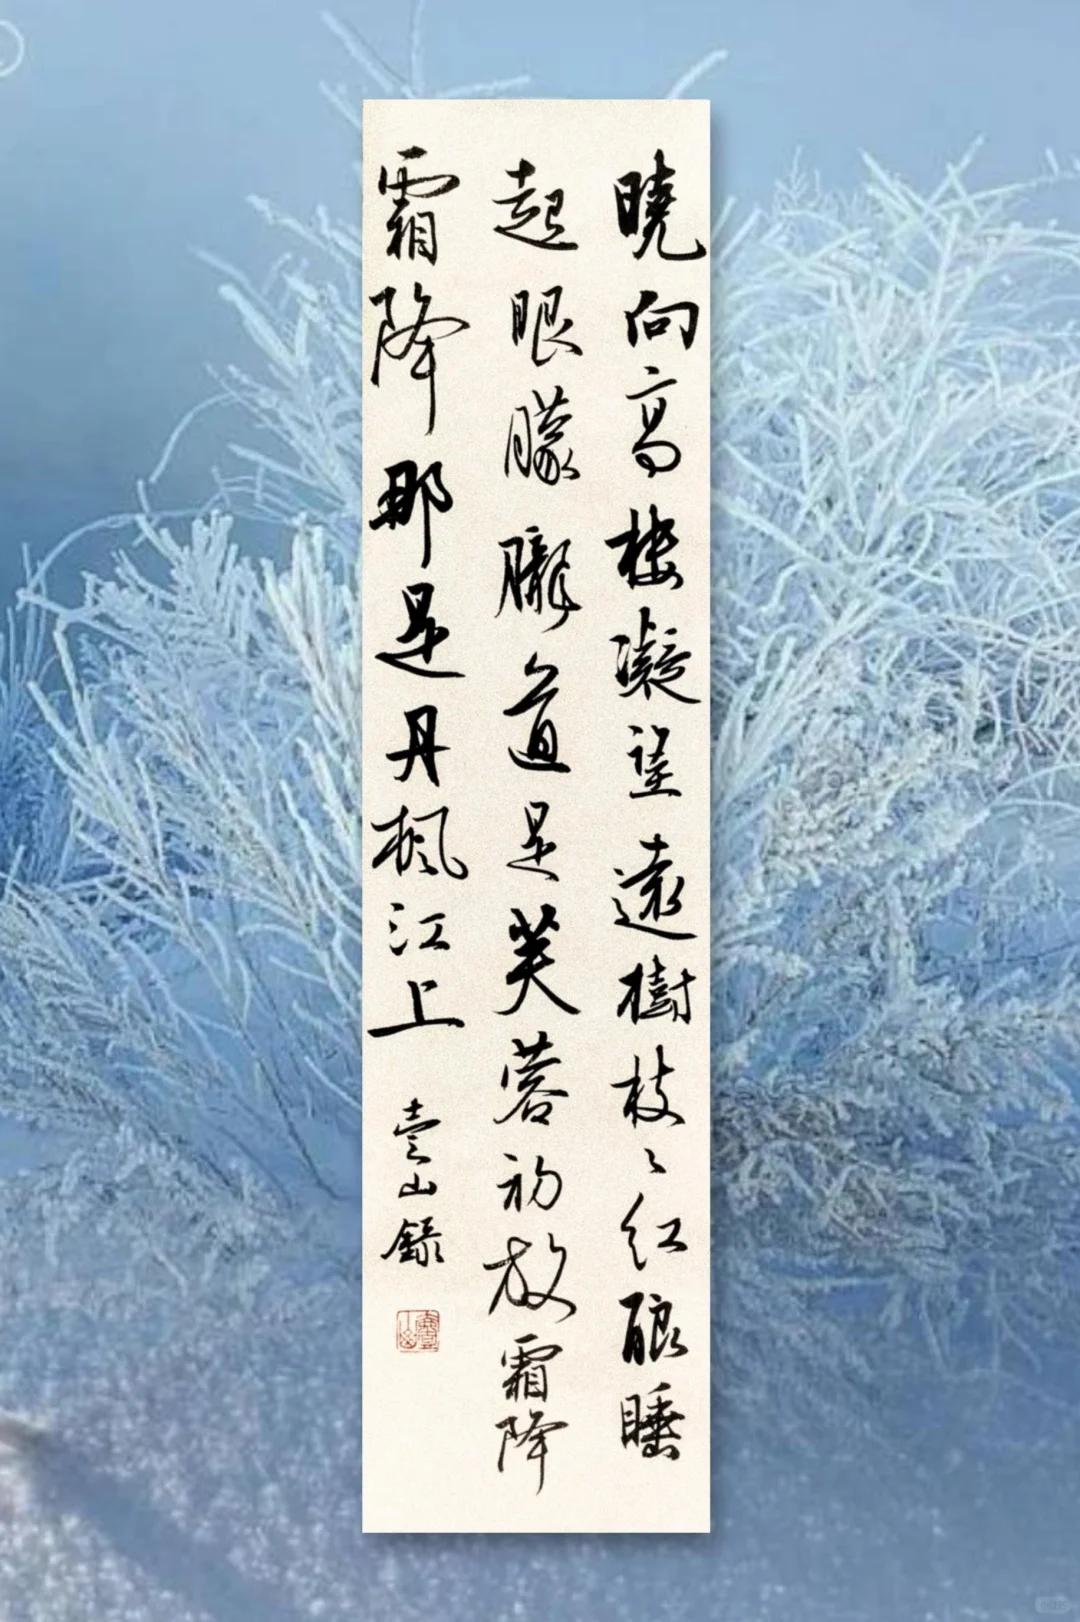 曉向高樓凝望遠樹枝〻紅釀睡
起眼朦朧道是芙蓉初放霜降
霜降那是丹楓江上
壹山錄